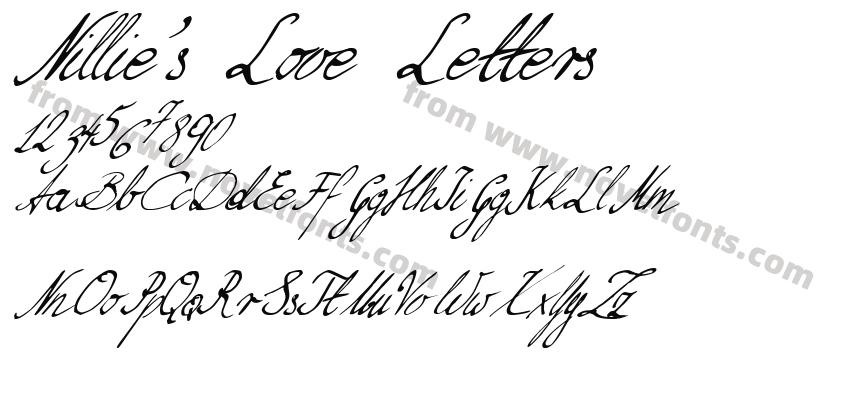 Nillie's Love Letters
1234567890
AaBbCcDdEeFfGgHhIiGgKkLlMm
NnOoPpQqRrSsTtUuVvWwXxYyZz
from www.novafonts.com
from www.novafonts.com